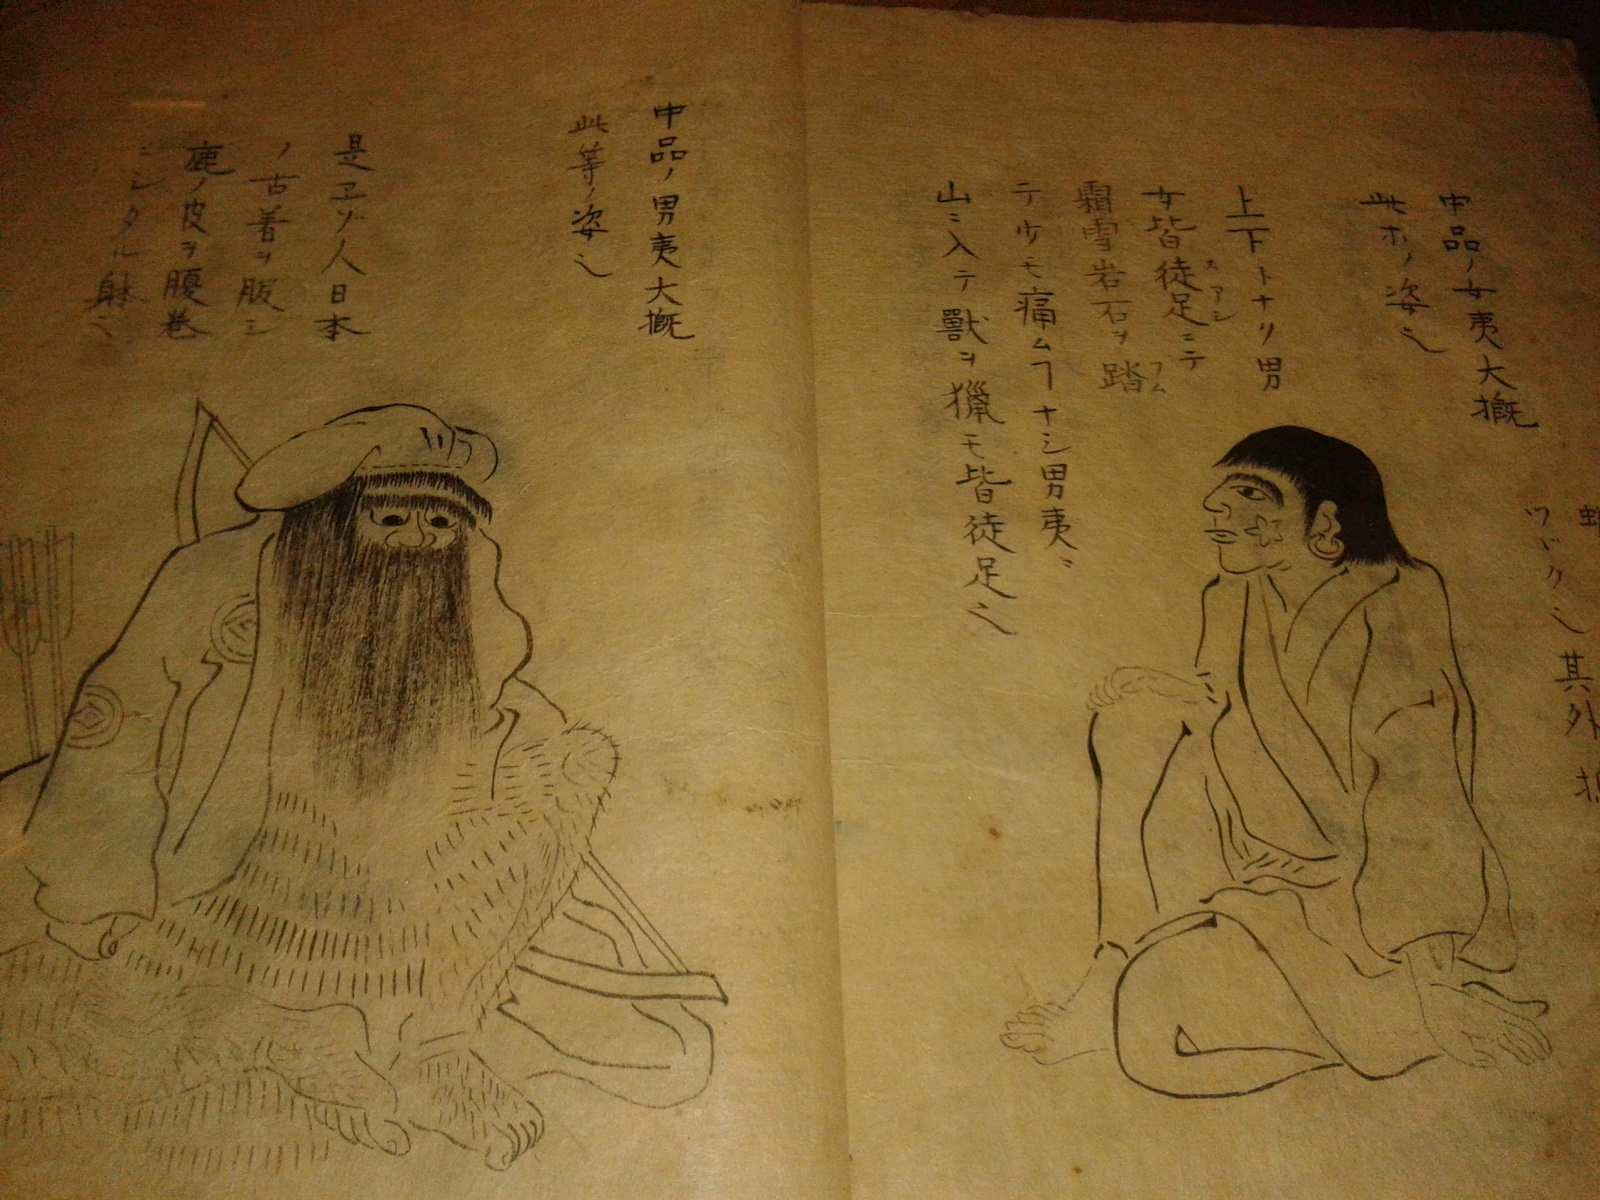 ツドクシ其外
中品ノ女夷大概
此ホノ姿也
上下トナリ男
女皆徒足ニテ
スアシ
霜雪岩石ヲ踏
フム
テ少モ痛ムヿナシ男夷ニ
山ニ入テ獸ヲ獵モ皆徒足也
中品ノ男夷大概
此等ノ姿也
是ヱゾ人日本
ノ古着ヲ服シ
鹿ノ皮ヲ腹巻
ニシタル躰也